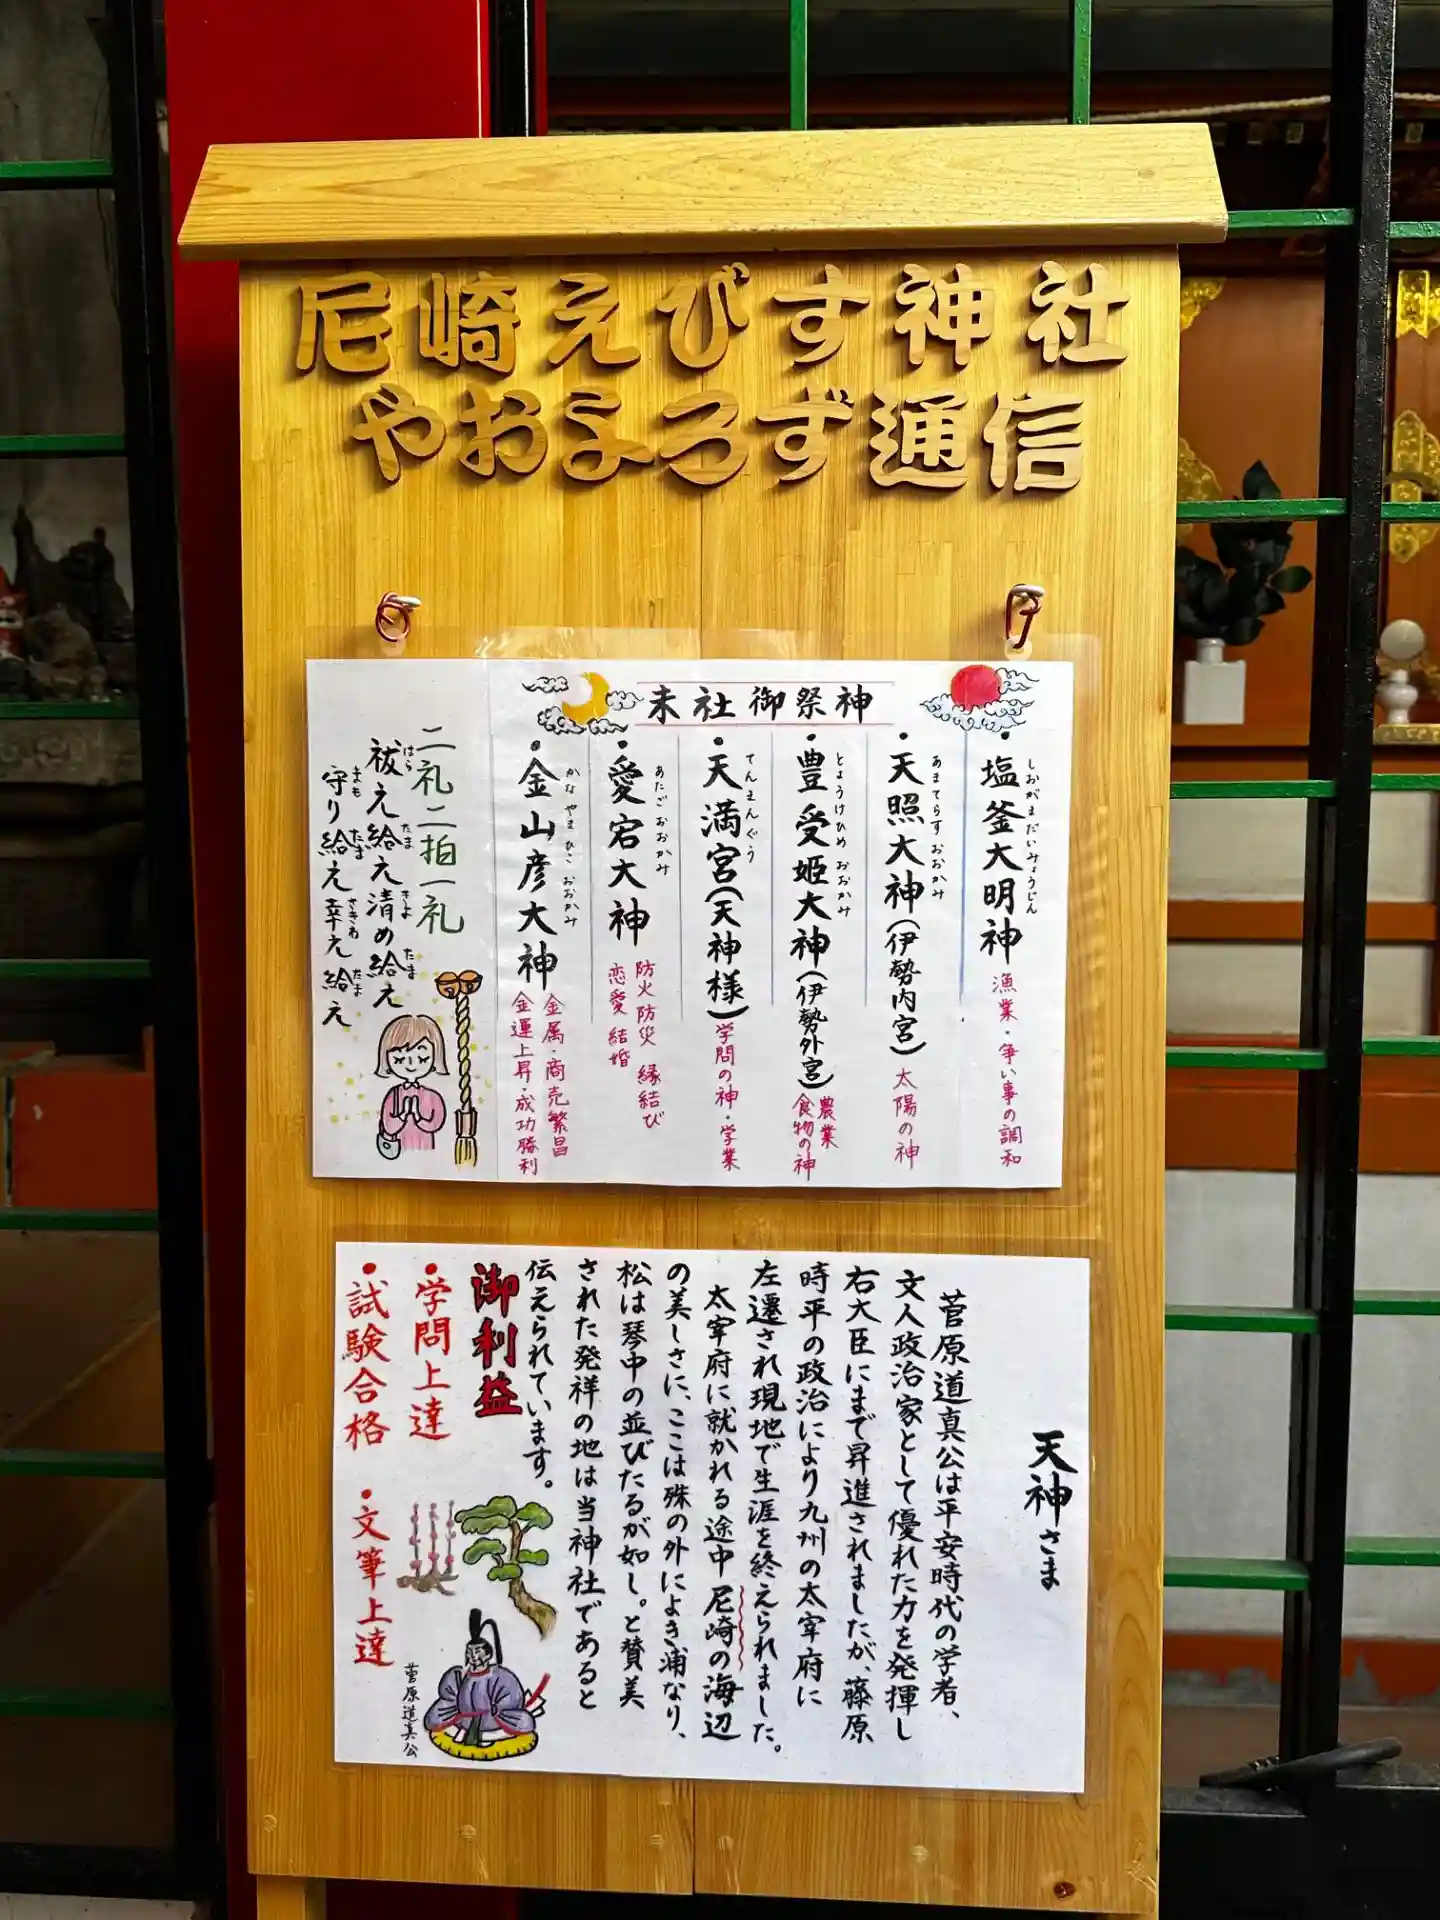 尼崎えびす神社
やおよろず通信
末社御祭神
・塩釜大明神
しおがまだいみょうじん
漁業・争い事の調和
・天照大神(伊勢内宮)
あまてらすおおかみ
太陽の神
・豊受姫大神(伊勢外宮)
とようけひめおおかみ
農業
食物の神
・天満宮(天神様)
てんまんぐう
学問の神・学業
・愛宕大神
あたごおおかみ
防火防災 縁結び
恋愛 結婚
・金山彦大神
かなやまひこおおかみ
金属・商売繁昌
金運上昇・成功勝利
二礼二拍一礼
祓え給え清め給え
はら たま きよ たま
守り給え幸え給え
まも たま さきわ たま
天神さま
菅原道真公は平安時代の学者、
文人政治家として優れた力を発揮し
右大臣にまで昇進されましたが、藤原
時平の政治により九州の太宰府に
左遷され現地で生涯を終えられました。
太宰府に就かれる途中尼崎の海辺
の美しさに、ここは殊の外によき浦なり、
松は琴中の並びたるが如し。と賛美
された発祥の地は当神社であると
伝えられています。
御利益
・学問上達
・試験合格
・文筆上達
菅原道真公